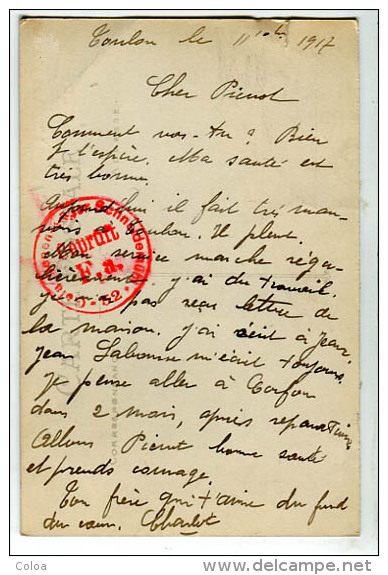 Toulon le 11 1917
Cher Pierrot
Comment vas-tu ? Bien
j l'espère. Ma santé est
très bonne.
Aujourd'hui il fait très mau-
vais à Toulon. Il pleut.
Mon service marche régu-
lièrement, j'ai du travail.
pas reçu lettre de
la maison. j'ai écrit à Jean,
Jean Labrousse m'écrit toujours.
Je pense aller à
dans 2 mois, après
Allons Pierrot bonne santé
et prends courage.
Ton frère qui t'aime du fond
du cœur. Charlot
Geprüft
F. a.
CARTE POSTALE
CORRESPONDANCE
Coloa
www.delcampe.net